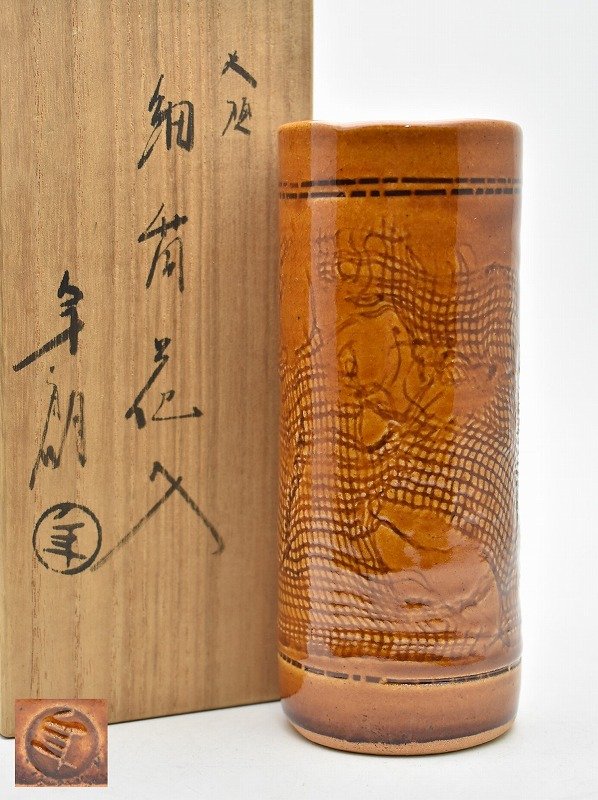 大樋
細筒花入
年朗
年